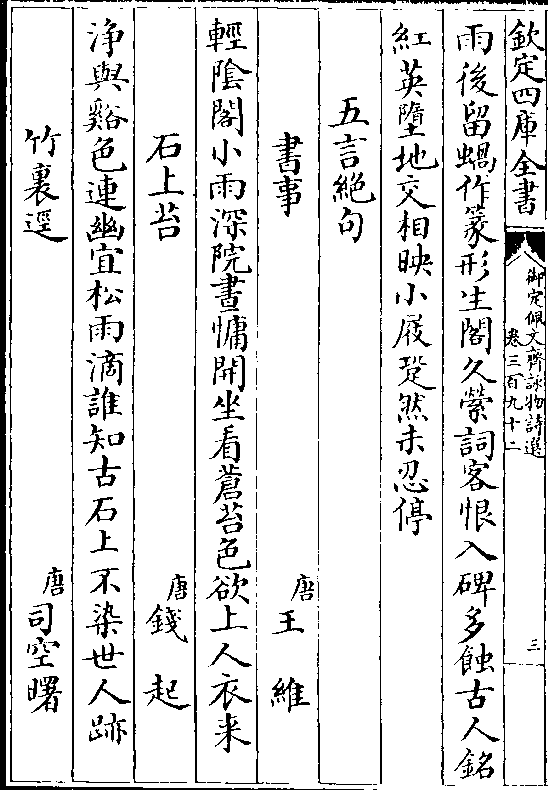 欽定四庫全書
御定佩文齋詠物詩選
卷三百九十二
三
雨後留蝸作篆形生閣久縈詞客恨入碑多蝕古人銘
紅英墮地交相映小屐跫然未忍停
五言絶句
書事
唐王維
輕陰閣小雨深院晝慵開坐看蒼苔色欲上人衣来
石上苔
唐錢起
淨與谿色連幽宜松雨滴誰知古石上不染世人跡
竹裏逕
唐司空曙